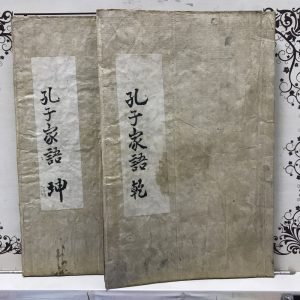 孔子家語 乾
孔子家語 坤